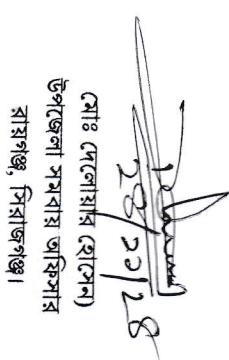 (মোঃ দেলোয়ার হোসেন)
উপজেলা সমবায় অফিসার
রায়গঞ্জ, সিরাজগঞ্জ।